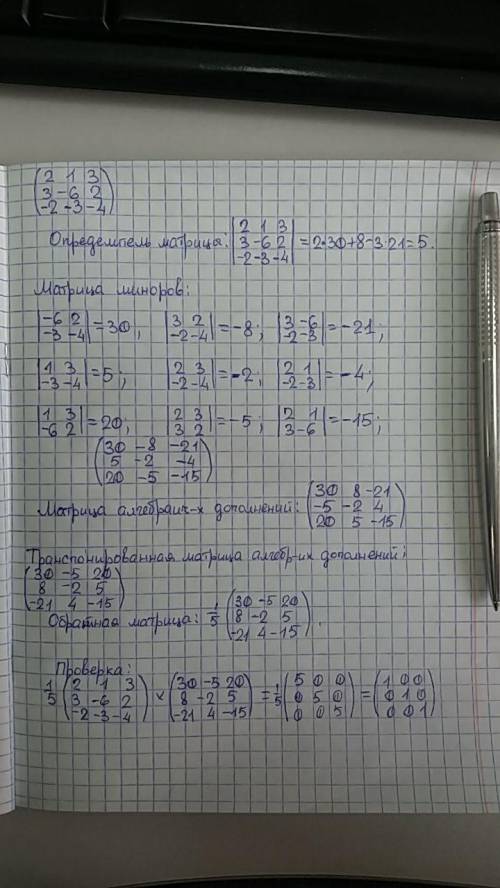 (2 1 3
3 -6 2
-2 -3 -4)
Определитель матрица: |2 1 3
3 -6 2
-2 -3 -4| = 2·30+8-3·21=5.
Матрица миноров:
|-6 2
-3 -4| = 30; |3 2
-2 -4| = -8; |3 -6
-2 -3| = -21;
|1 3
-3 -4| = 5; |2 3
-2 -4| = -2; |2 1
-2 -3| = -4;
|1 3
-6 2| = 20; |2 3
3 2| = -5; |2 1
3 -6| = -15;
(30 -8 -21
5 -2 -4
20 -5 -15)
Матрица алгебраич-х дополнений: (30 8 -21
-5 -2 4
20 5 -15)
Транспонированная матрица алгебр-их дополнений:
(30 -5 20
8 -2 5
-21 4 -15)
Обратная матрица: 1/5 (30 -5 20
8 -2 5
-21 4 -15).
Проверка:
1/5 (2 1 3
3 -6 2
-2 -3 -4) × (30 -5 20
8 -2 5
-21 4 -15) = 1/5 (5 0 0
0 5 0
0 0 5) = (1 0 0
0 1 0
0 0 1)